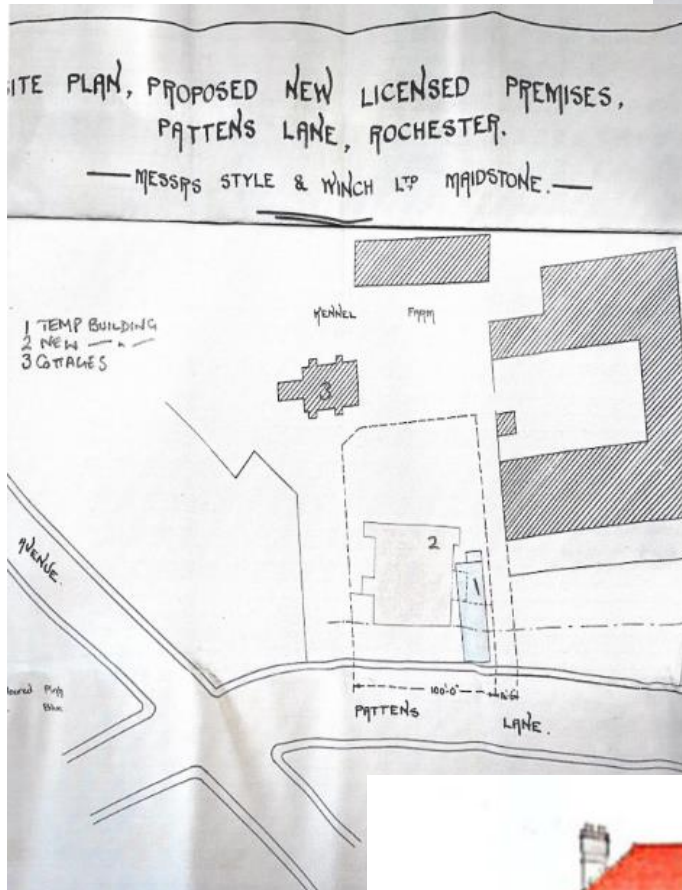 ITE PLAN, PROPOSED NEW LICENSED PREMISES,
PATTENS LANE, ROCHESTER.
MESSRS STYLE & WINCH LTD MAIDSTONE.
KENNEL FARM
1 TEMP BUILDING
2 NEW — " —
3 COTTAGES
3
2
1
AVENUE.
oured Pink
100'-0"
PATTENS LANE.